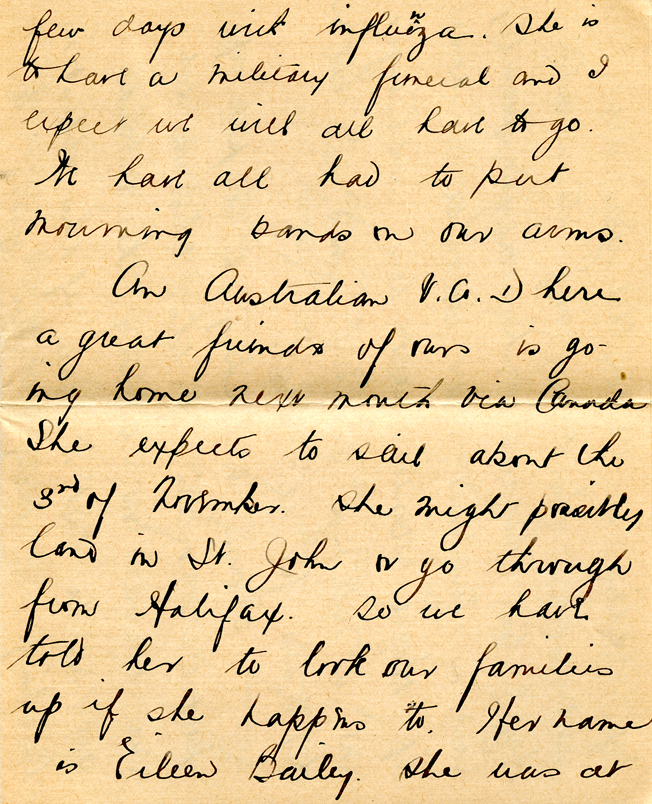 few days with influenza. She is
to have a military funeral and I
expect we will all have to go.
We have all had to put
mourning bands on our arms.
An Australian V.A.D here
a great friend of ours is go-
ing home next month via Canada
She expects to sail about the
3rd of November. She might possibly
land in St. John or go through
from Halifax. so we have
told her to look our families
up if she happens to. Her name
is Eileen Bailey. She was at